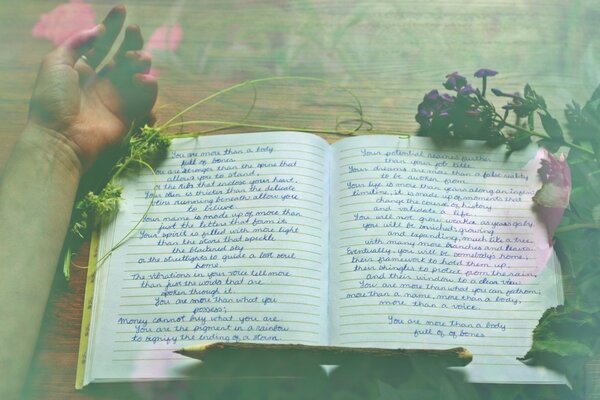 You are more than a body
full of bones.
You are stronger than the spine that
allows you to stand,
or the ribs that endose your heart.
You are thicker than the delicate
veins running beneath allow you
to believe.
Your name is made up of more than
just the letters that form it.
Your spirit is filled with more light
than the stars that speckle
the blackened sky
or the streetlights to guide a lost soul
home.
The vibrations in your voice tell more
than just the words that are
spoken through it.
You are more than what you
possess;
Money cannot buy what you are.
You are the pigment in a rainbow
to signify the ending of a storm.
Your potential reaches further
than your fall.
Your dreams are more than a false reality
to be asleep for.
Your life is more than years along an
timeline; it is made up of moments that
change the course of history
and validate a life.
You will not grow weaker as years go by,
you will be branched growing
and expanding, much like a tree,
with many more branches and leaves.
Eventually, you will be somebody's home,
their framework to hold them up,
their shingles to protect from the rain,
and their window to a clear day.
You are more than what you can fathom;
more than a name, more than a body,
more than a voice.
You are more than a body
full of of bones.